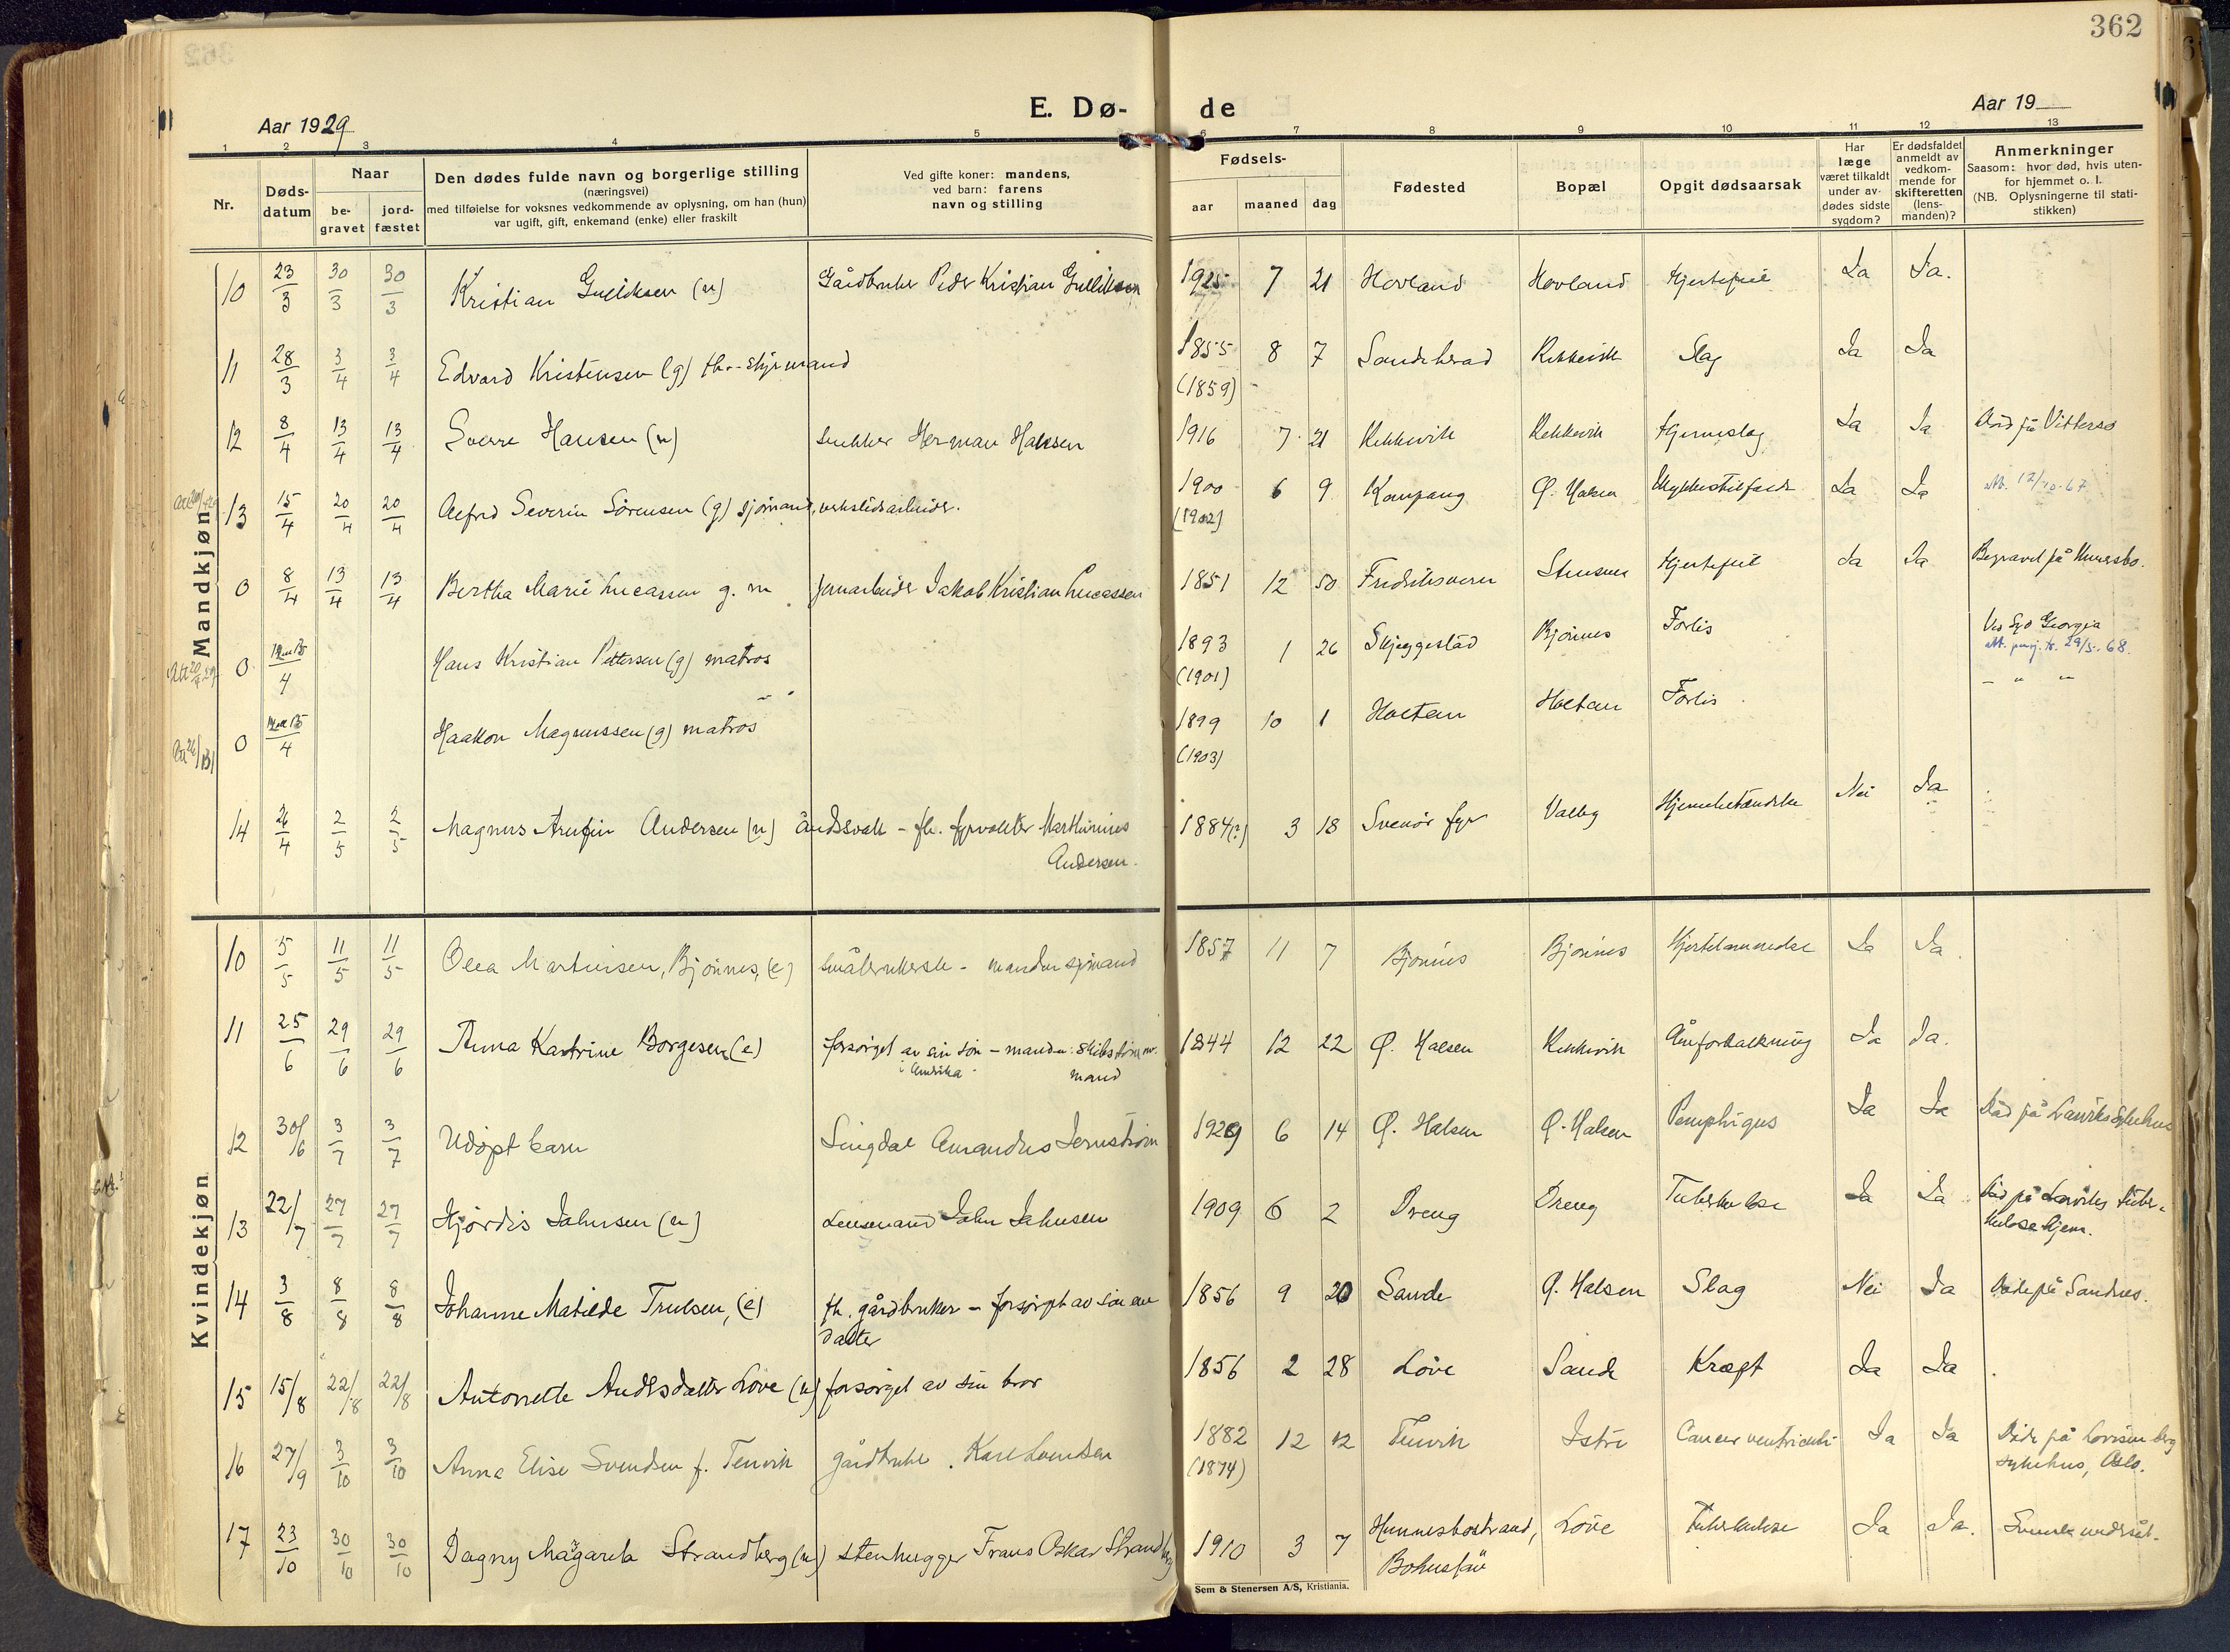 362
Aar 1929
E. Dø-
de
Aar 19
1 2 3 4 5 6 7 8 9 10 11 12 13
Nr.
Døds-
datum
Naar
be-
gravet
jord-
fæstet
Den dødes fulde navn og borgerlige stilling
(næringsvei)
med tilføielse for voksnes vedkommende av oplysning, om han (hun)
var ugift, gift, enkemand (enke) eller fraskilt
Ved gifte koner: mandens,
ved barn: farens
navn og stilling
Fødsels-
aar maaned dag
Fødested
Bopæl
Opgit dødsaarsak
Har
læge
været tilkaldt
under av-
dødes sidste
sygdom?
Er dødsfaldet
anmeldt av
vedkom-
mende for
skifteretten
(lens-
manden)?
Anmerkninger
Saasom: hvor død, hvis uten-
for hjemmet o. l.
(NB. Oplysningerne til stati-
stikken)
Mandkjøn
10 23/3 30/3 30/3 Kristian Gulliksen (u) Gårdbruker Peder Kristian Gulliksen 1925 7 21 Hovland Hovland Hjertefeil Ja Ja.
11 28/3 3/4 3/4 Edvard Kristensen (g) fh.-styrmand 1855 8 7 Sandeherad Rekkevik Slag Ja Ja
(1859)
12 8/4 13/4 13/4 Sverre Hansen (u) Snekker Herman Hansen 1916 7 21 Rekkevik Rekkevik Hjerneslag Ja Ja Død på Vittersø
13 15/4 20/4 20/4 Alfred Severin Sørensen (g) sjømand, verkstedsarbeider. 1900 6 9 Kaupang Ø. Halsen Ulykkestilfælde Ja Ja att. 12/10-67
(1902)
0 8/4 13/4 13/4 Bertha Marie Lucassen g. m. Jernarbeider Jakob Kristian Lucassen 1851 12 30 Fredriksvern Stensnes Hjertefeil Ja Ja Begravet på
0 4 Hans Kristian Pettersen (g) matros 1893 1 26 Skjeggestad Bjønnes Forlis Ved Sjø Georgia
(1901) att. 29/5-68.
0 4 Haakon Magnussen (g) matros 1899 10 1 Holtan Holtan Forlis - " -
(1903)
14 26/4 2/5 2/5 Magnus Arnfin Andersen (u) åndssvak - fh. fyrvokter Marthinius 1884(?) 3 18 Svenør fyr Valby Hjernebetændelse Nei Ja
Andersen.
Kvindekjøn
10 5/5 11/5 11/5 Olea Martinsen, Bjønnes, (e) Småbrukerske - manden sjømand 1857 11 7 Bjønnes Bjønnes Hjertelammelse Ja Ja
11 25/6 29/6 29/6 Anna Kathrine Borgesen (e) forsørget av sin søn - manden: skibstømmer- 1844 12 22 Ø. Halsen Rekkevik Åreforkalkning Ja Ja.
i Amerika mand
12 30/6 3/7 3/7 Udøpt barn Lingdal Amandus Jernstrøm 1929 6 14 Ø. Halsen Ø. Halsen Pemphigus Ja Ja Død på Larviks Sykehus
13 22/7 27/7 27/7 Hjørdis Johnsen (u) Lensmand John Johnsen 1909 6 2 Dreng Dreng Tuberkulose Ja Ja Død på Larviks tuber-
kulosehjem.
14 3/8 8/8 8/8 Johanne Matilde Trulsen, (e) fh. gårdbruker - forsørget av sin ene 1856 9 20 Sande Ø. Halsen Slag Nei Ja Døde på Sandnes.
datter
15 15/8 22/8 22/8 Antonette Andersdatter Løve (u) forsørget av sin bror 1856 2 28 Løve Sande Kræft Ja Ja
16 27/9 3/10 3/10 Anna Elise Svendsen f. Tenvik gårdbruker Karl Svendsen 1882 12 12 Tenvik Istre Cancer ventriculi Ja Ja Døde på Lovisenberg
(1874) sykehus, Oslo.
17 23/10 30/10 30/10 Dagny Margareta Strandberg (u) stenhugger Frans Oskar Strandberg 1910 3 7 Hunnebostrand, Løve Tuberkulose Ja Ja. Svensk undersåt.
Bohuslän
Sem & Stenersen A/S, Kristiania.